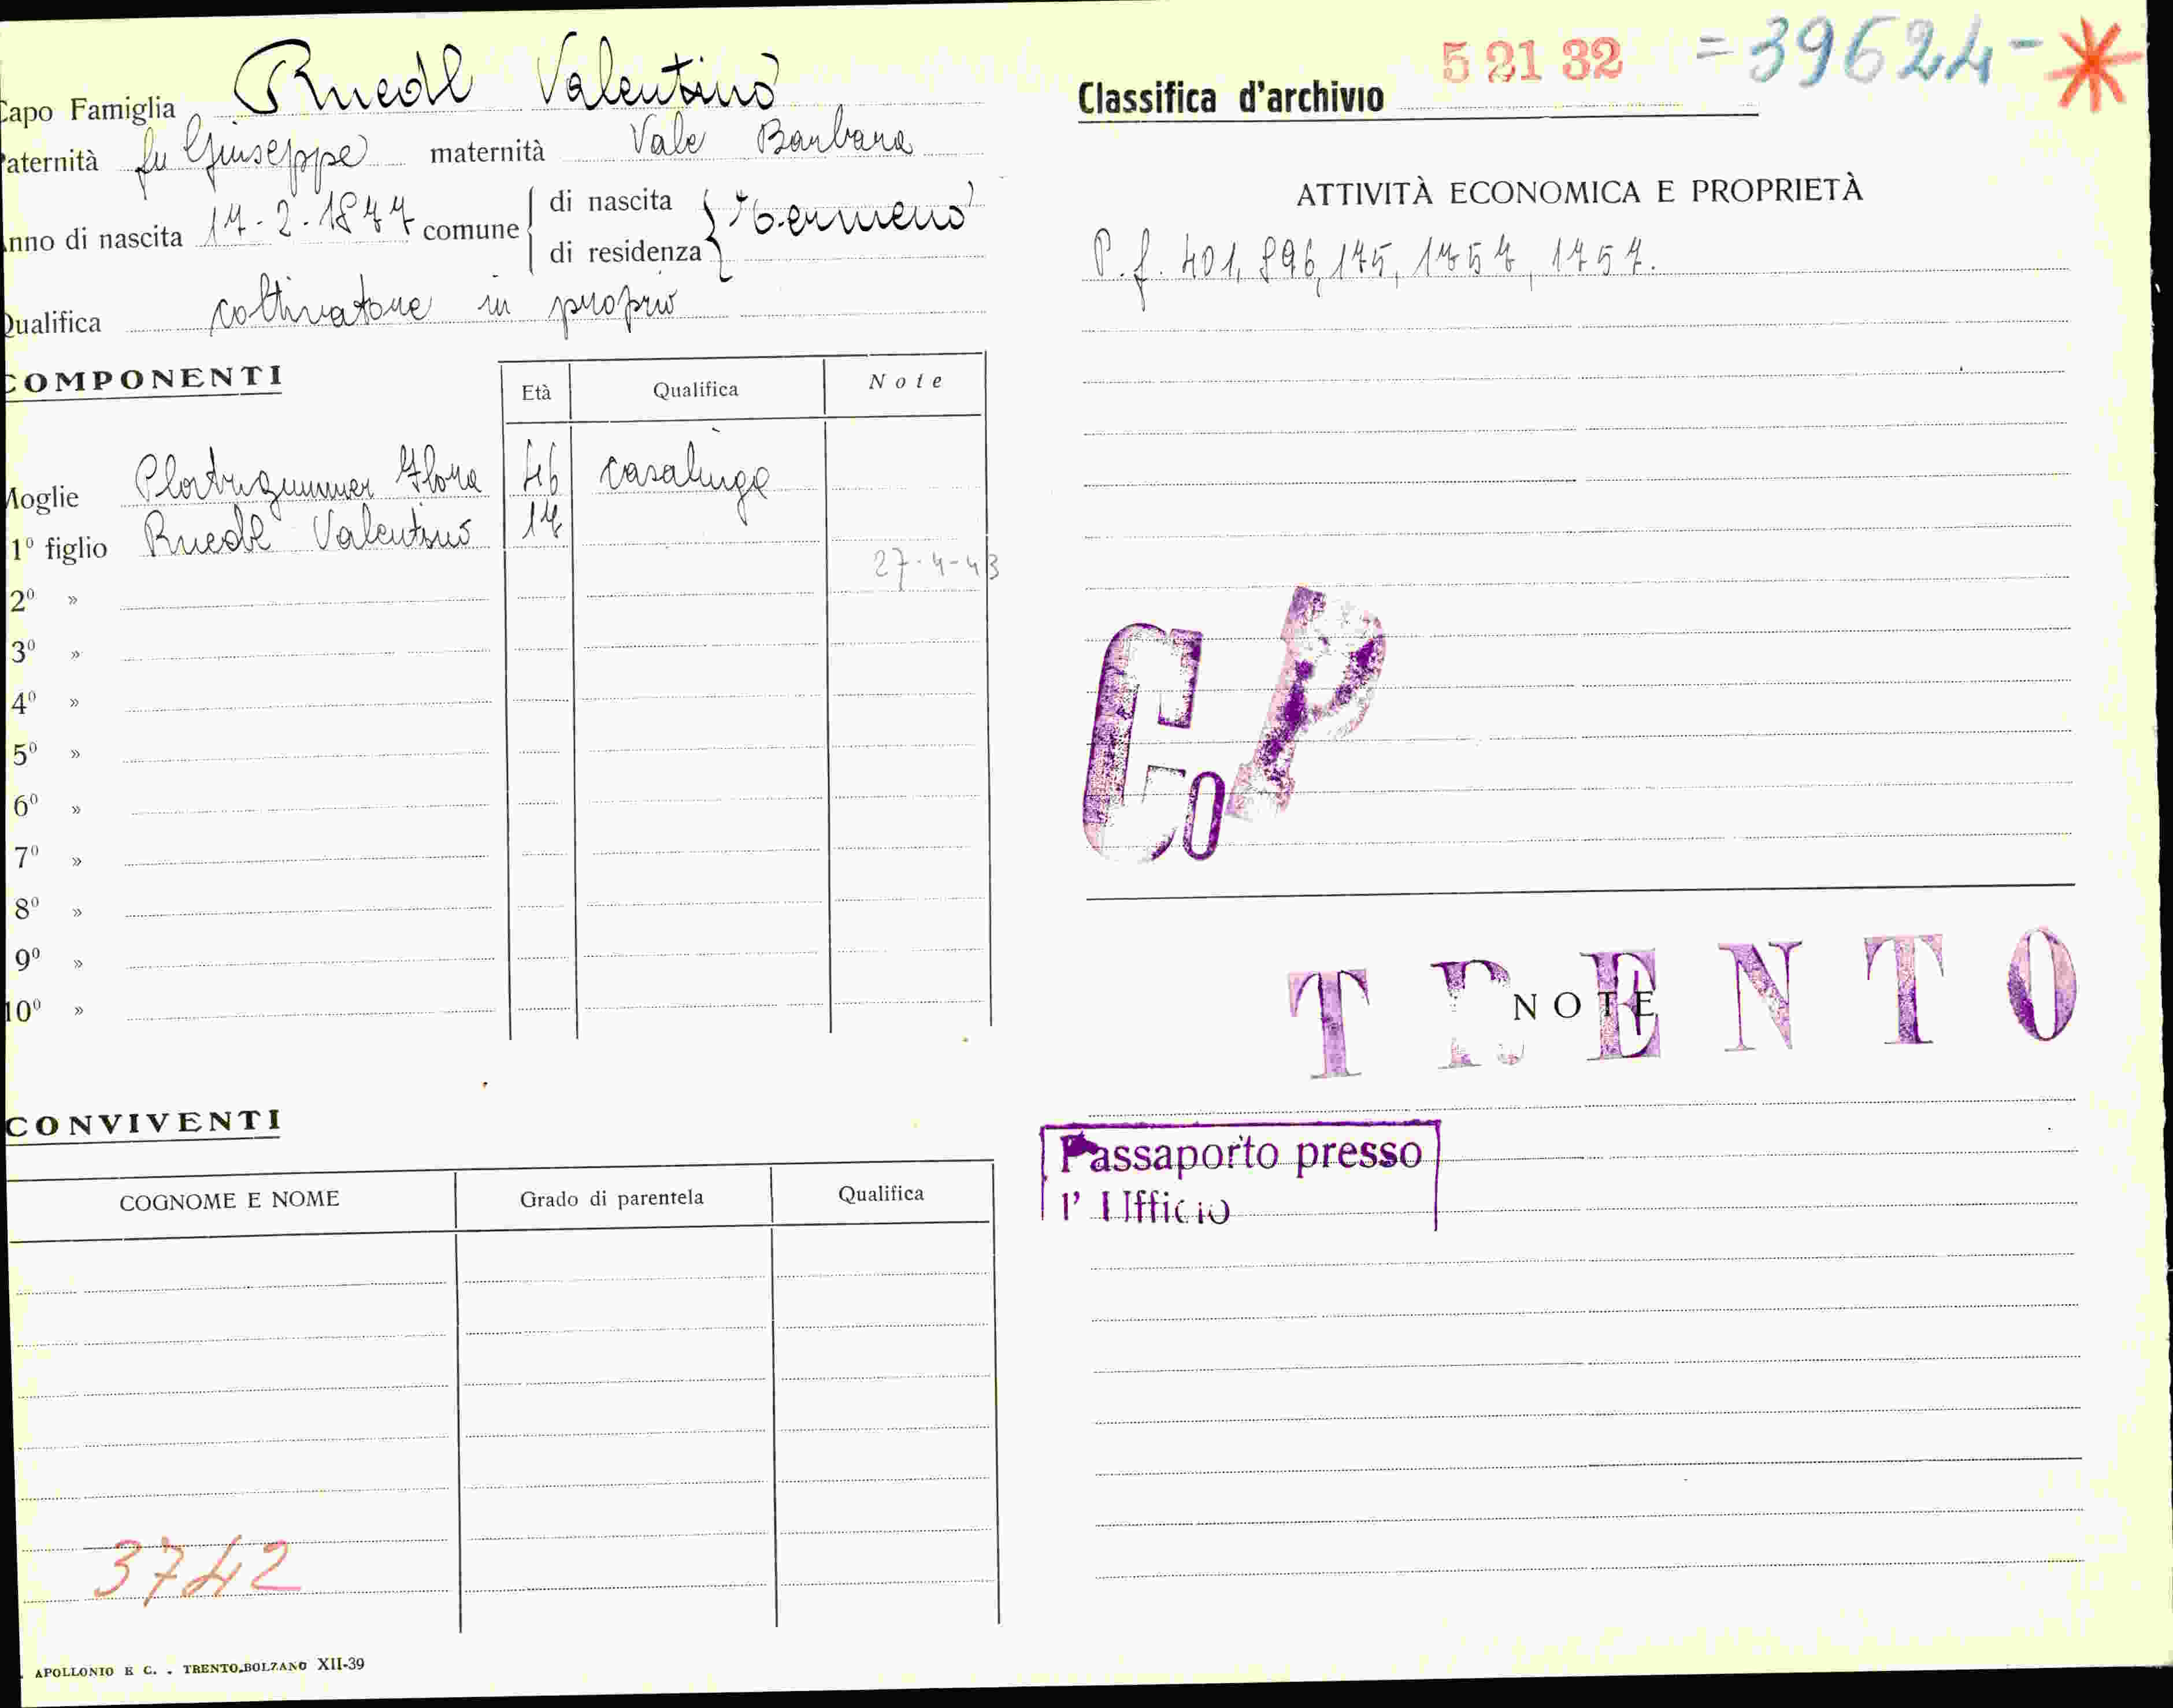 Capo Famiglia Ruedl Valentino
Paternità fu Giuseppe maternità Vale Barbara
Anno di nascita comune di nascita di residenza Termeno
Qualifica coltivatore in proprio
COMPONENTI
Età Qualifica Note
Moglie Flora 46 casalinga
1º figlio Ruedl Valentino 17
27-4-43
2º »
3º »
4º »
5º »
6º »
7º »
8º »
9º »
10º »
CONVIVENTI
COGNOME E NOME Grado di parentela Qualifica
3742
APOLLONIO E C. - TRENTO-BOLZANO XII-39
52132 =39624-
Classifica d'archivio
ATTIVITÀ ECONOMICA E PROPRIETÀ
P.f. 401, 896, 175, 1757, 1457.
CoP
TRENTO
NOTE
Passaporto presso
l' Ufficio